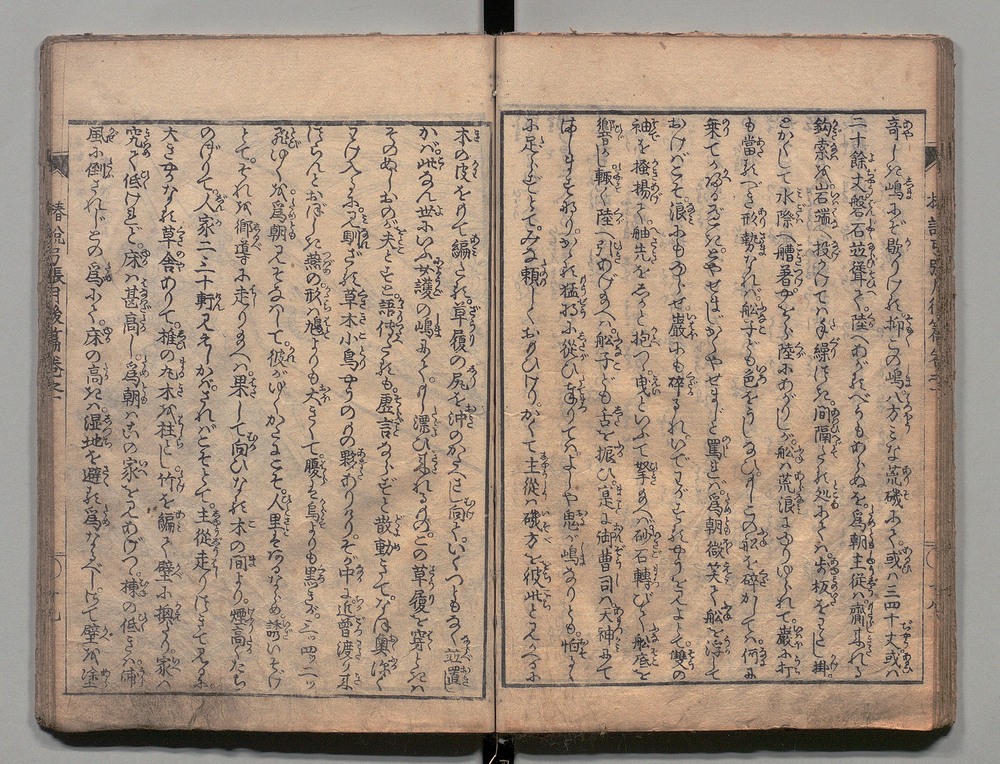 奇しき嶋にぞ歇りける。抑この嶋八方みな荒磯にて。或は三四十丈或は
二十餘丈盤石並聳て。陸へあがるべうもあらぬを。為朝主従は齎来れる
鈎索を岩端へ投かけては手繰けき。間隔たれる処にては歩板をわたし掛。
とかくして水際へ艚著。みな陸にあがりしが。船は荒浪にゆられて。巌に打
も當るべき形勢なれば。舩子ども色をうしなひ。この船を碎かしては。何に
乗てかかへるべき。とやせましかくやせましと罵れば。為朝微笑て。船を浮して
おけばこそ浪にもゆらせ。巌にも碎るれ。いでわがするやうをよとて。雙の
袖を掻揚て。舳先をしかと抱つゝ。曳といふて撃あへば。砂石轉びて。舩底を
響し輙く陸へ引あげ給へば。舩子ども舌を振ひ。寔に御曹司は大神にて
おはしますなり。かゝる猛将に従ひまゐりては。よしや鬼が嶋なりとも。怕るゝ
に足らずとて。みな頼しくおもひけり。かくて主従は磯方を彼此と見給ふに
木の皮をもて編たる。草履の尻を沖のかたへさし向て。いくつともなく並置
かば。此なん世にいふ女護の嶋にて。漂ひ来れるもの。この草履を穿ときは
そのぬしおのが夫とすと語傳たるも。虚言ならずと散動きて。なほ奥深く
わけ入り給ふに。馴ざる草木小鳥なりのもの夥ありけり。その中に近曽渡り来
けらんとおぼしき燕の形は鳩よりも大きうして。腰は烏よりも黒きが。三ツ四ツ二ツ
飛ゆくを為朝見そなはして。彼がゆくかたこそ人里なるならめ。誘いそげ
とて。それを郷導に走り給へば。果して向ひなる木の間より。煙高くたち
のぼりて。人家二三十軒見えしかば。さればこそとて。主従走りつきて見給ふに。
大きやかなる草舎ありて。椎の丸木を柱とし。竹を編て壁に換たり。家は
究て低けれど。床は甚高し。為朝はこの家を見あげつゝ。棟の低きは沖
風に倒されじとの為にて。床の高きは湿地を避る為なるべし。さて壁を塗
椿説弓張月後篇巻之一